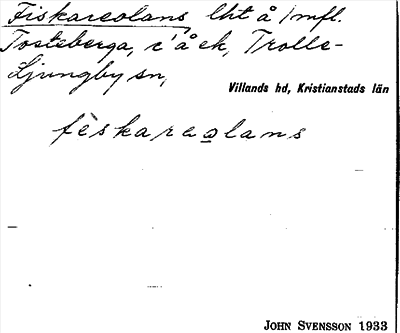 Fiskareolans lht å 1 mfl.
Tosteberga, c'å ek, Trolle-
Ljungby sn,
Villands hd, Kristianstads län
fèskareolans
JOHN SVENSSON 1933